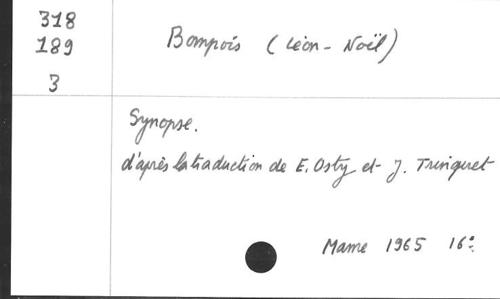 318
189
3
Bompois (Léon-Noël)
Synopse.
d'après la traduction de E. Osty et J. Trinquet
Mame 1965 16°